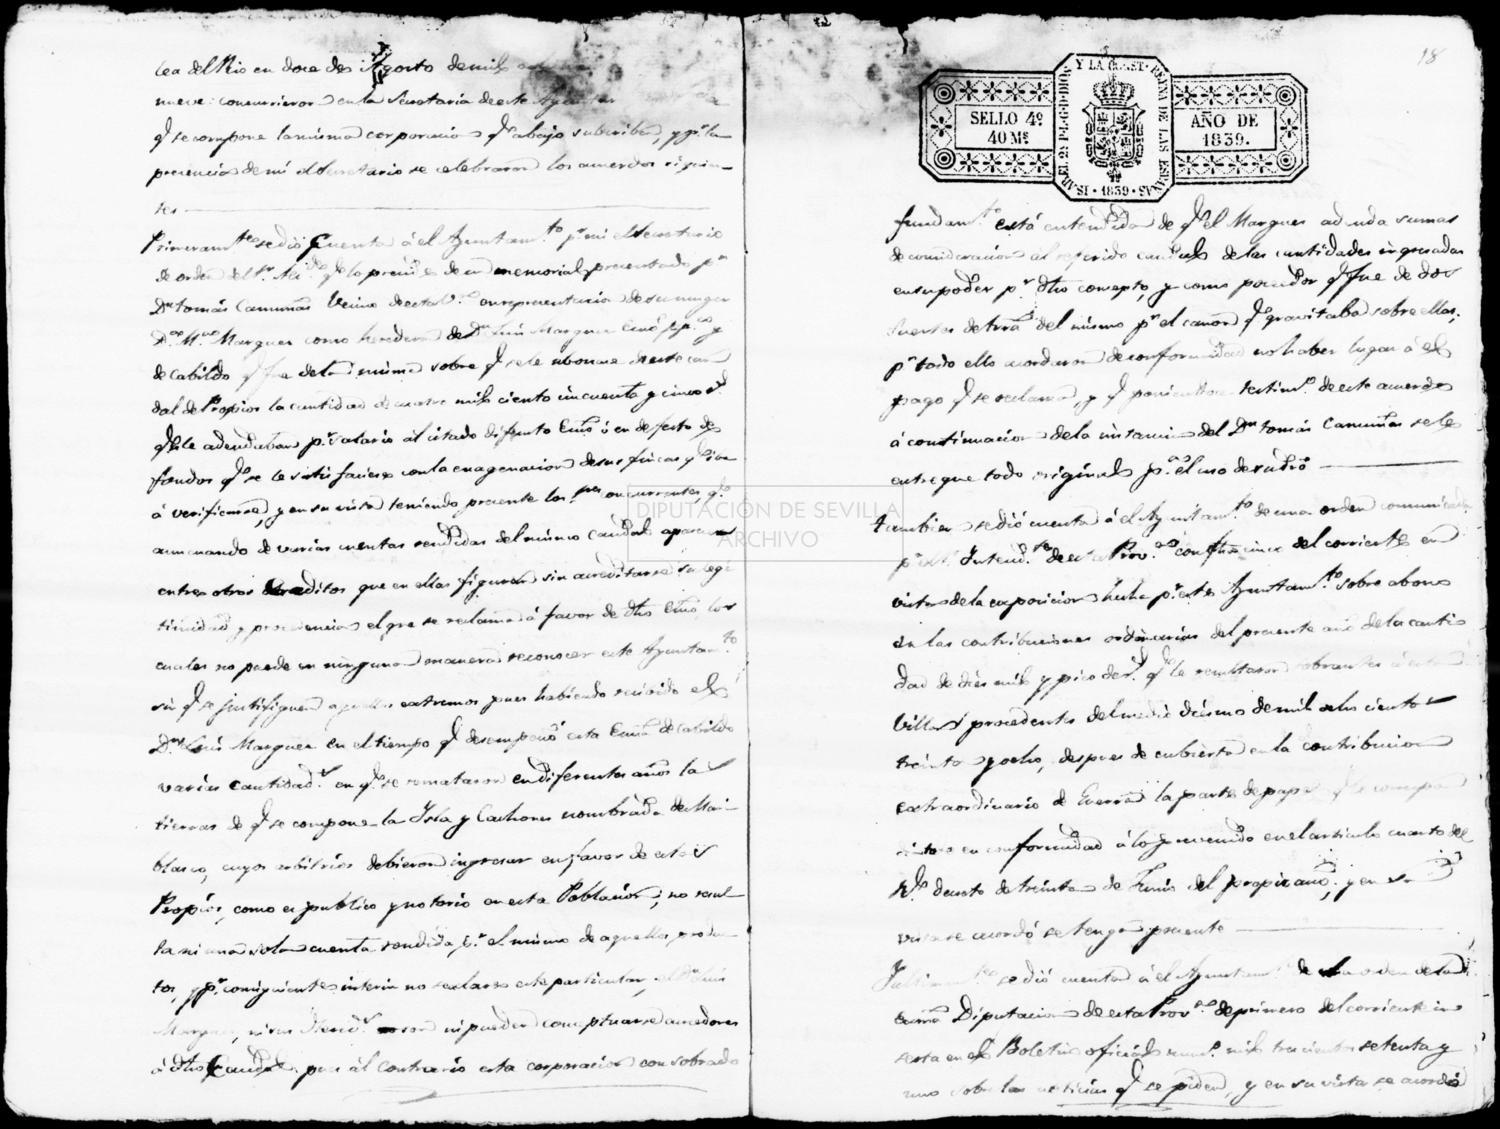 cea del Rio en doce de Agosto de mil
nueve: concurrieron en la Secretaria de este Ayuntam
qe se compone la misma corporacion qe abajo subcriben, y pr la
presencia de mi el Secretario se celebraron los acuerdos siguien-
tes
Primeramte se dió Cuenta á el Ayuntamto pr mi el Secretario
de orden del Sr qe lo precide de un memorial presentado pr
Dn tomás Camuñas Vecino de esta Va en representacion de su muger
Da Ma Marquez como heredera de Dn Luis Marquez Esno pco y
de Cabildo qe fue de la misma sobre qe se le abonase de este cau
dal de Propios la cantidad de cuatro mil ciento cincuenta y cinco rs
qe le adeudaban pr salario al citado difunto Esno ó en defecto de
fondos qe se le satisfaciese con la enagenacion de sus fincas
á verificarse, y en su vista teniendo presente los Sres concurrentes qe
aun cuando de varias cuentas rendidas del mismo Caudal aparecen
entre otros Creditos que en ellas figuran sin acreditarse su legi
timidad y procedencia el que se reclama á favor de dho Esno, los
cuales no puede en ninguna manera reconocer este Ayuntamto
sin qe se justifiquen aquellos extremos pues habiendo recivido el
Dn Luis Marquez en el tiempo qe desempeñó esta Esna de Cabildo
varias Cantidads en qe se remataron en diferentes años la
tierras de qe se compone la Isla y Cachones nombrada de
blasco, cuyos arbitrios debieron ingresar en favor de estos
Propios, como es publico y notorio en esta Poblacion, no resul-
ta ni una sola cuenta rendida pr el mismo de aquellos produc-
tos, y pr consiguiente interin no se aclare este particular, el Dn Luis
Marquez, ni sus Heredos son ni pueden conceptuarse acredores
á dho Caudal pues al Contrario esta corporacion con sobrado
18
ISABEL 2ª P. L. G. D. DIOS Y LA CONST. REINA DE LAS ESPAÑAS
SELLO 4º
40 Ms
AÑO DE
1839.
1839
fundamto está entendida de qe el Marquez adeuda sumas
de consideracion al referido caudal de las cantidades ingresadas
en su poder pr dho concepto, y como poseedor qe fue de dos
Suertes de trra del mismo pr el canon qe gravitaba sobre ellas;
pr todo ello acordaron de conformidad no haber lugar á el
pago qe se reclama, y qe poniendose testimo de este acuerdo
á continuacion de la instancia del Dn tomás Camuñas se le
entregue todo original pa el uso de su dro
tambien se dió cuenta á el Ayuntamto de una orden comunicada
pr el Sr Intendte de esta Prova con fha cinco del corriente en
virtud de la exposicion hecha pr este Ayuntamto sobre abono
en las contribuciones ordinarias del presente año de la canti
dad de diés mil y pico de rs qe le resultaron sobrantes á esta
Villa procedentes del medio diesmo de mil ochocientos
treinta y ocho, despues de cubierta en la contribucion
extraordinaria de Guerra la parte de papel qe le
en conformidad á lo prevenido en el articulo cuarto del
Rl decreto de treinta de Junio del propio año; y en su
vista se acordó se tenga presente
Ultimamte se dió cuenta á el Ayuntamto de la orden de la
Diputacion de esta Prova de primero del corriente in
serta en el Boletin oficial numo mil trecientos setenta y
uno sobre las noticias qe se piden, y en su vista se acordó
DIPUTACIÓN DE SEVILLA
ARCHIVO